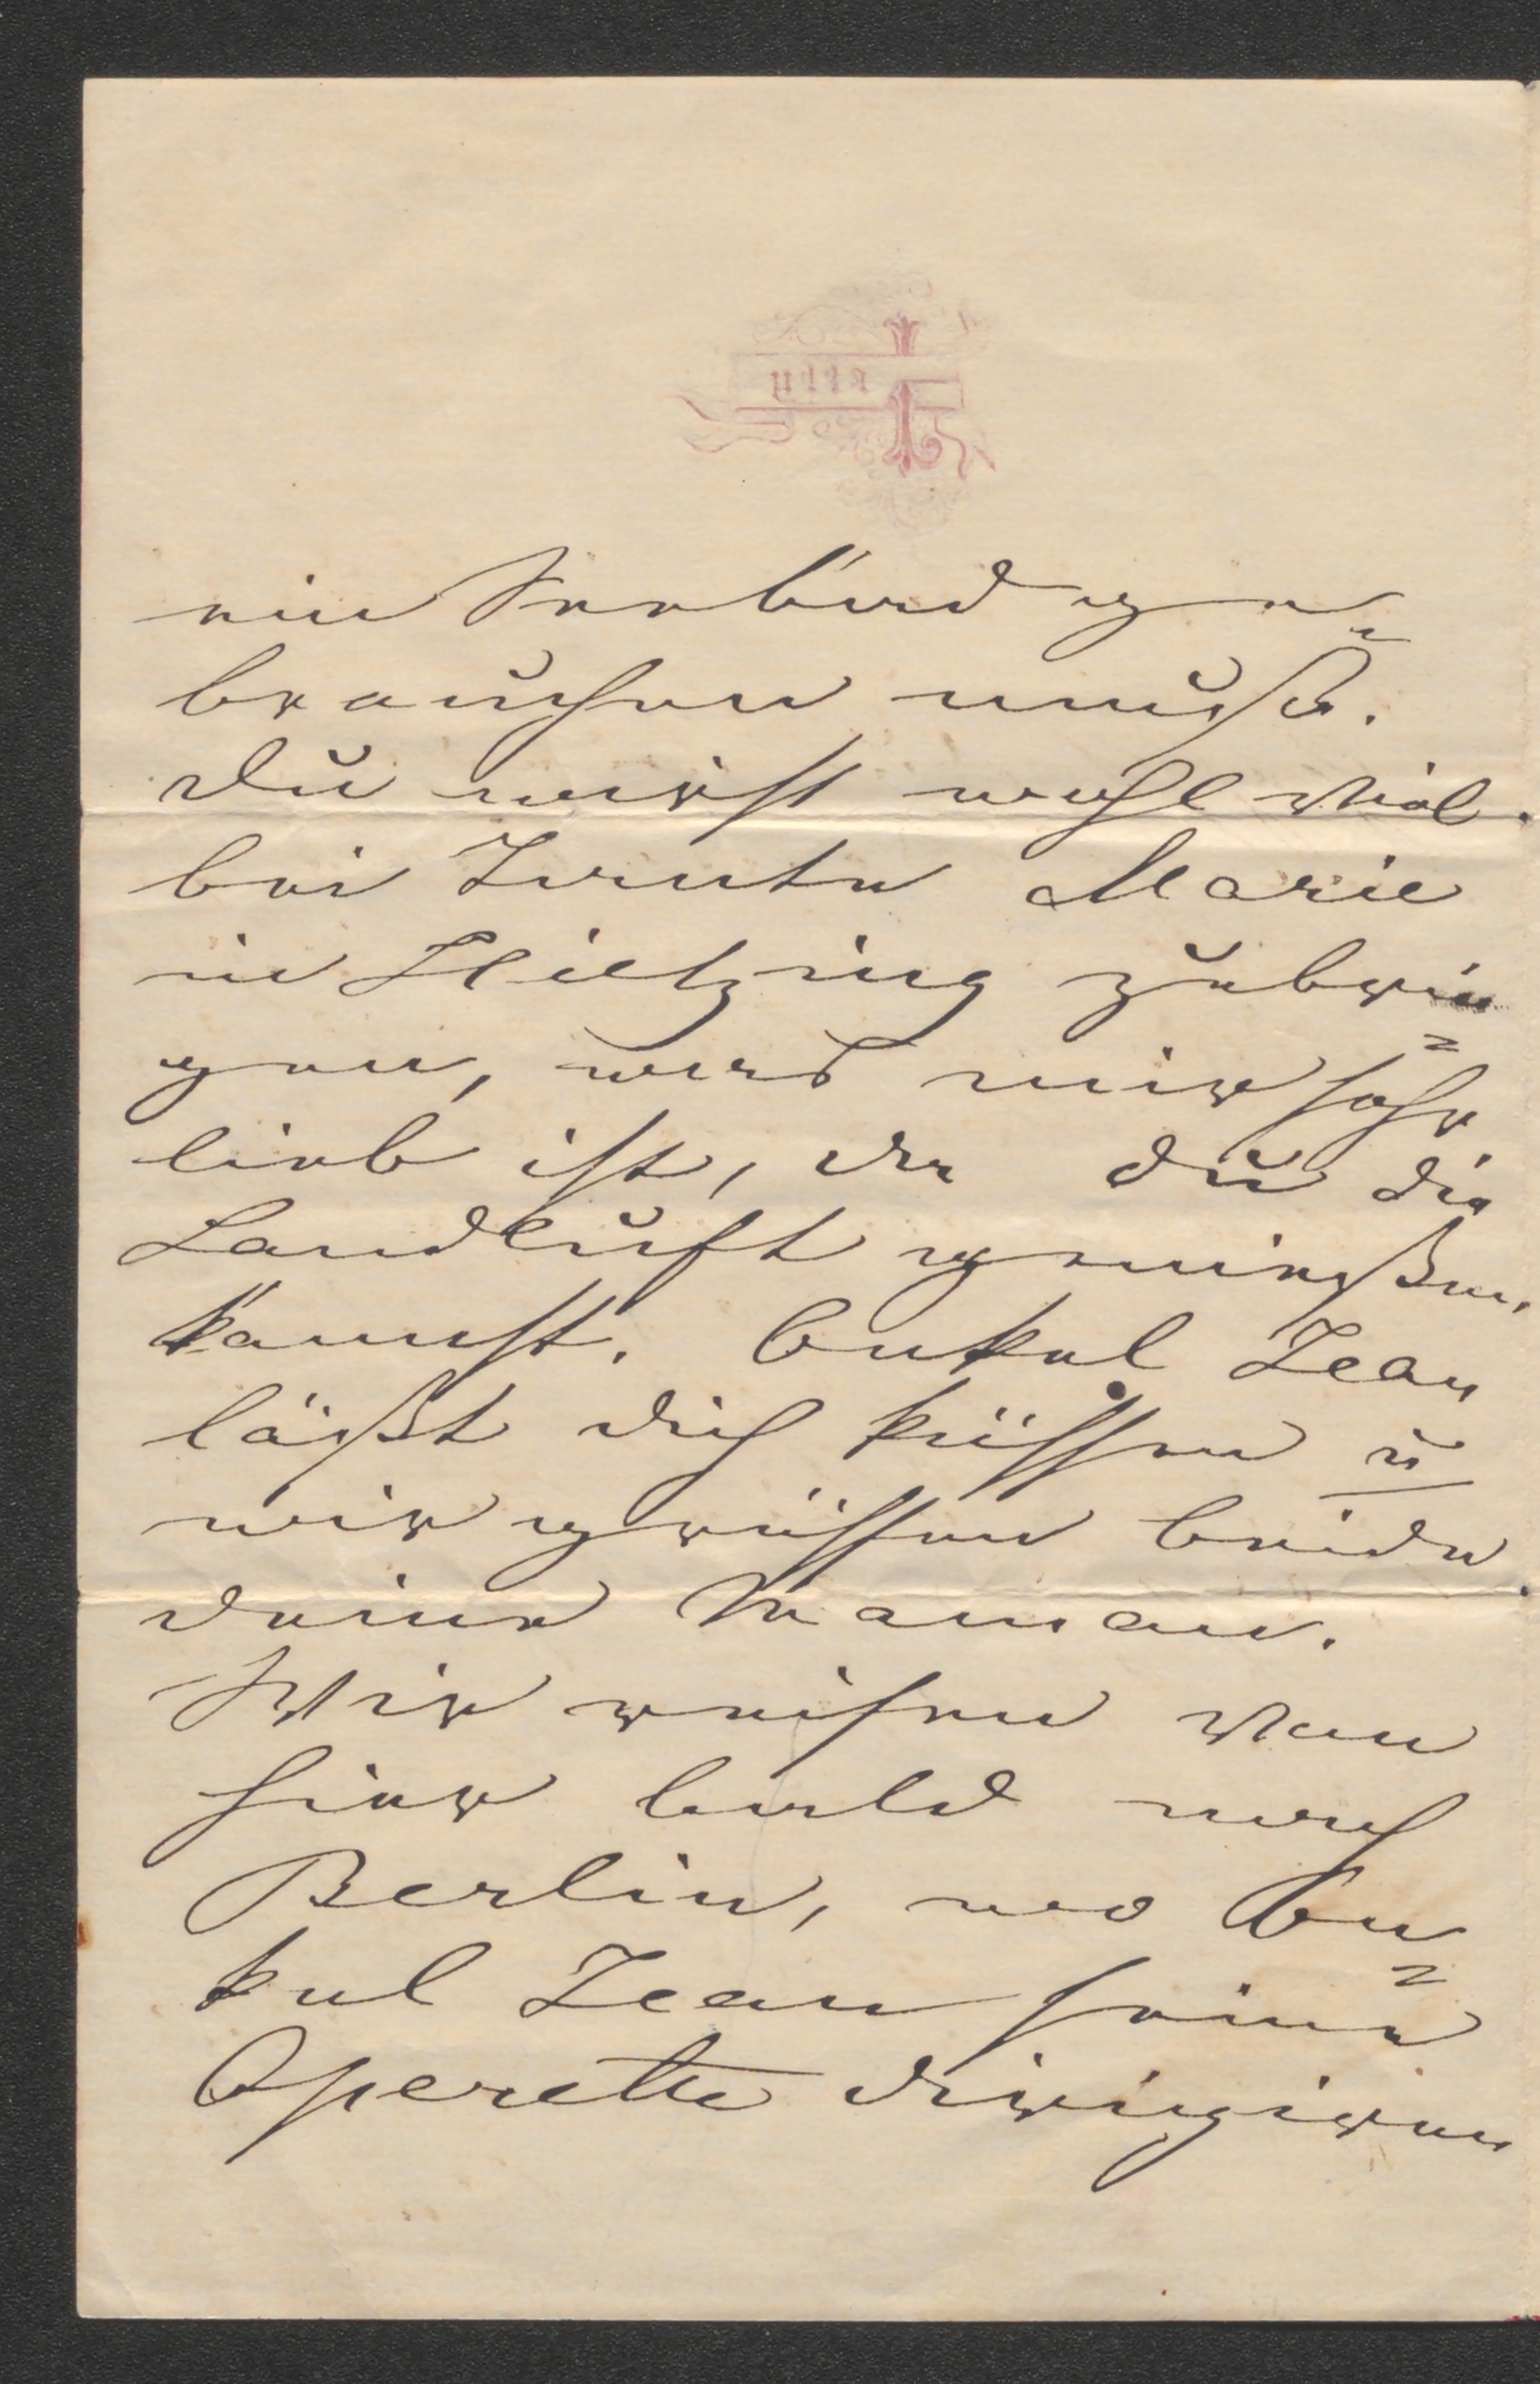 ein Seebad ge=
brauchen muß.
Du wirst wohl viel
bei Tante Marie
in Hietzing zubrin=
gen, was mir sehr
lieb ist, da du die
Landluft genießen
kannst. Onkel Jean
läßt dich küssen u
wir grüssen beide
deine Maman.
Wir reisen von
hier bald nach
Berlin, wo On=
kel Jean seine
Operette dirigiren